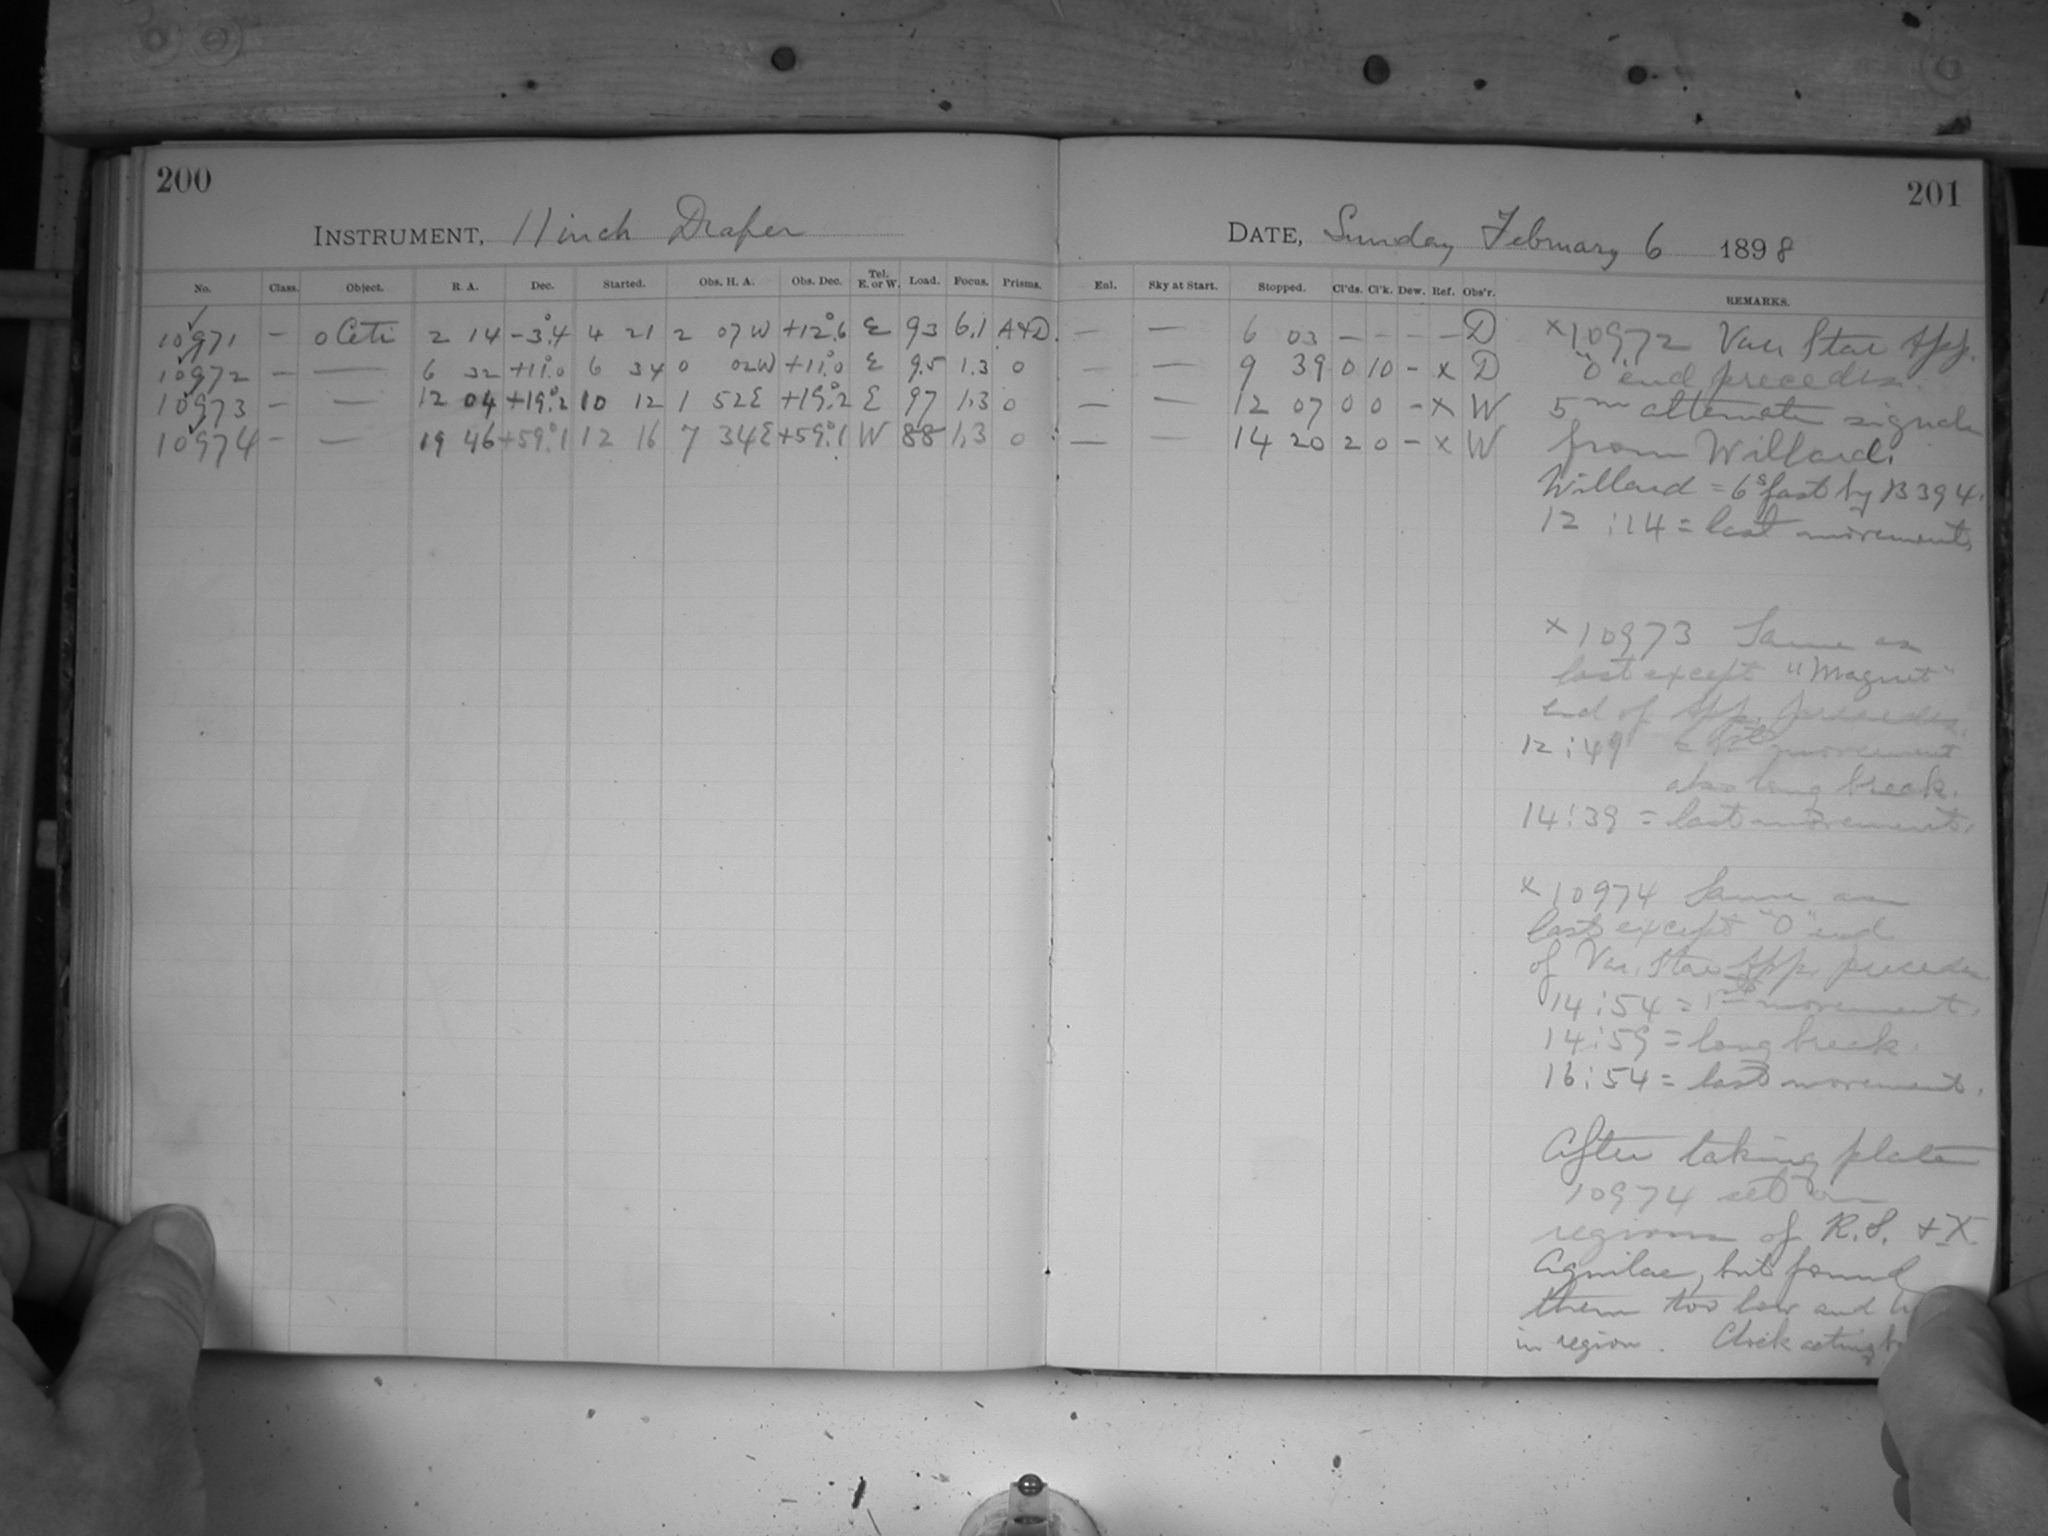 200
INSTRUMENT, 11 inch Draper
No. Class. Object. R. A. Dec. Started. Obs. H. A. Obs. Dec. Tel. E. or W. Load. Focus. Prisms.
10971 — o Ceti 2 14 -3°.4 4 21 2 07 W +12°.6 E 93 6.1 A+D.
10972 — — 6 32 +11°.0 6 34 0 02 W +11°.0 E 95 1.3 0
10973 — — 12 04 +19°.2 10 12 1 52 E +19°.2 E 97 1.3 0
10974 — — 19 46 +59°.1 12 16 7 34 E +59°.1 W 88 1.3 0
201
DATE, Sunday February 6 1898
Eal. Sky at Start. Stopped. Cl'ds. Cl'k. Dew. Ref. Obs'r. REMARKS.
— — 6 03 — — — — D
— — 9 39 0 10 - x D
— — 12 07 0 0 - x W
— — 14 20 2 0 - x W
x 10972 Var Star App.
"0" end precedes.
5m alternate signals
from Willard.
Willard = 6s fast by B 394.
12 : 14 = last movement.
x 10973 Same as
last except "Magnet"
end of App. precedes.
12 : 49 = 1st movement
also long break.
14 : 39 = last movement.
x 10974 Same as
last except "0" end
of Var. Star App. precedes
14 : 54 = 1st movement.
14 : 59 = long break.
16 : 54 = last movement.
After taking plate
10974 set on
regions of R.S. + X
Aquilae, but found
them too low and
in region. Clock acting